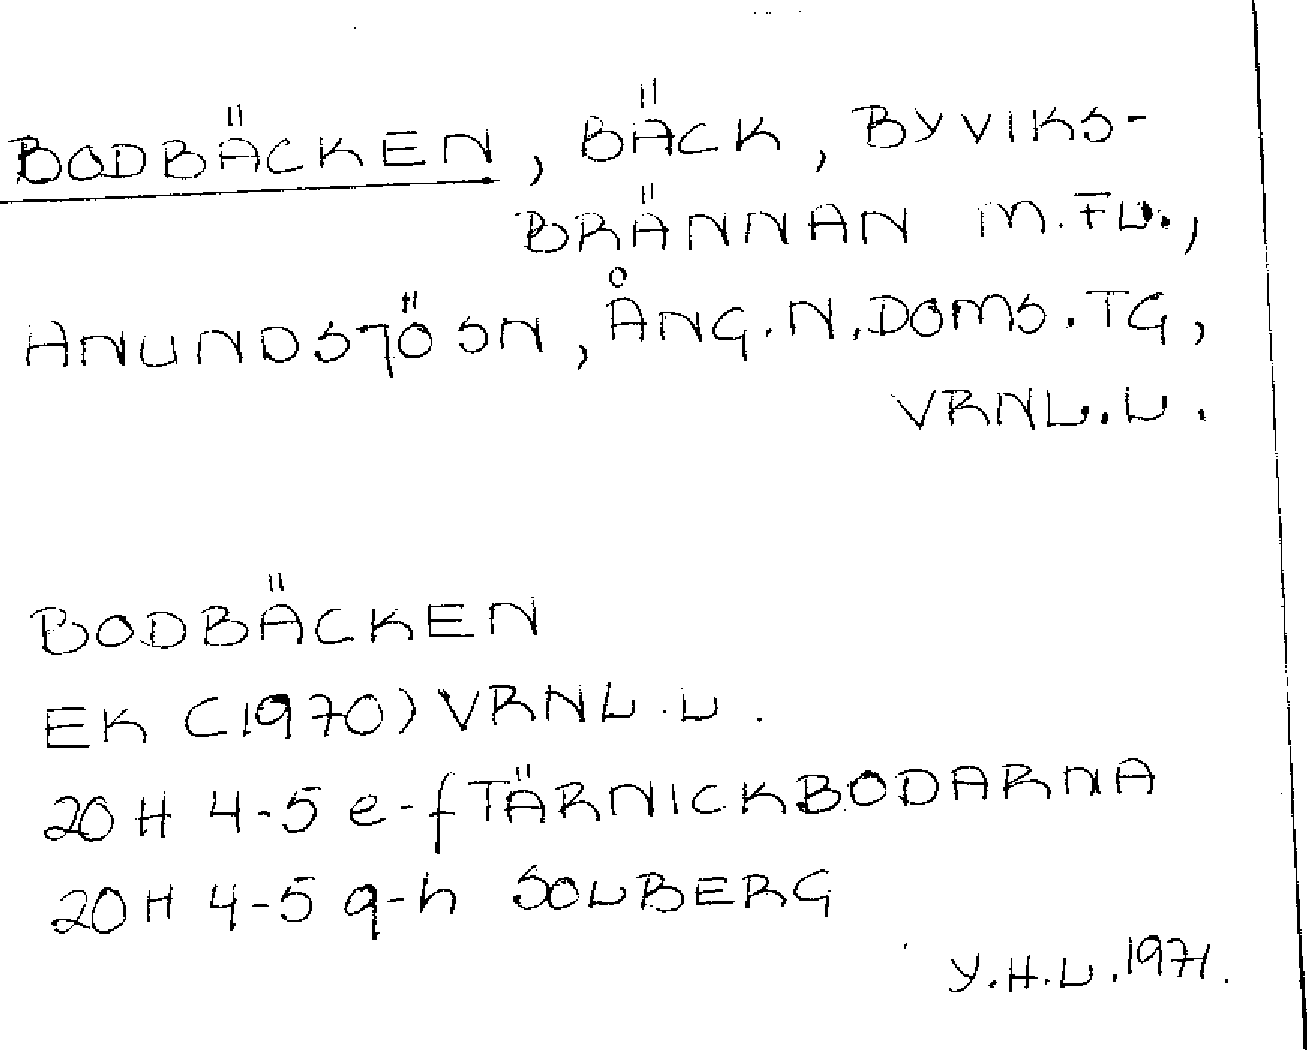 BODBÄCKEN, BÄCK, BYVIKS-
BRÄNNAN M.FL.,
ANUNDSJÖ SN, ÅNG.N.DOMS.TG,
VRNL.L.
BODBÄCKEN
EK (1970) VRNL.L.
20H 4-5 e-f TÄRNICKBODARNA
20H 4-5 g-h SOLBERG
Y.H.L.1971.